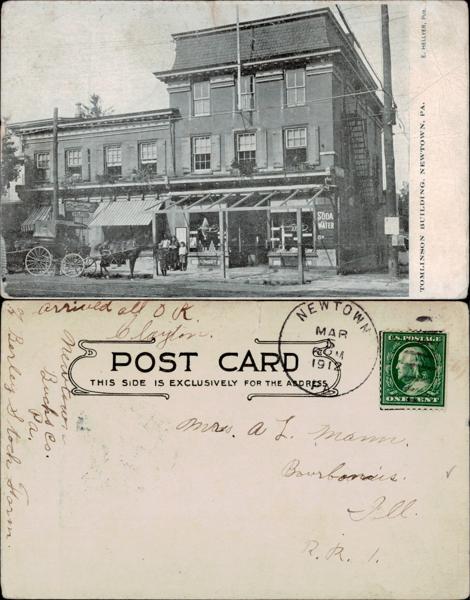 SODA
WATER
TOMLINSON BUILDING, NEWTOWN, PA.
E. HELLYER, PUB.
arrived all O K
Clayton.
POST CARD
THIS SIDE IS EXCLUSIVELY FOR THE ADDRESS
NEWTOWN
MAR
PM
1912
U.S. POSTAGE
ONE CENT
Mrs. A L. Mann.
Bourbonais.
Ill.
R. R. 1.
Newtown
Bucks Co.
Pa.
Stock Farm.